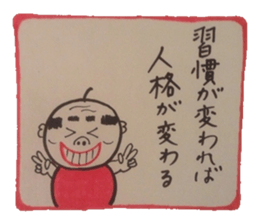 習慣が変われば
人格が変わる